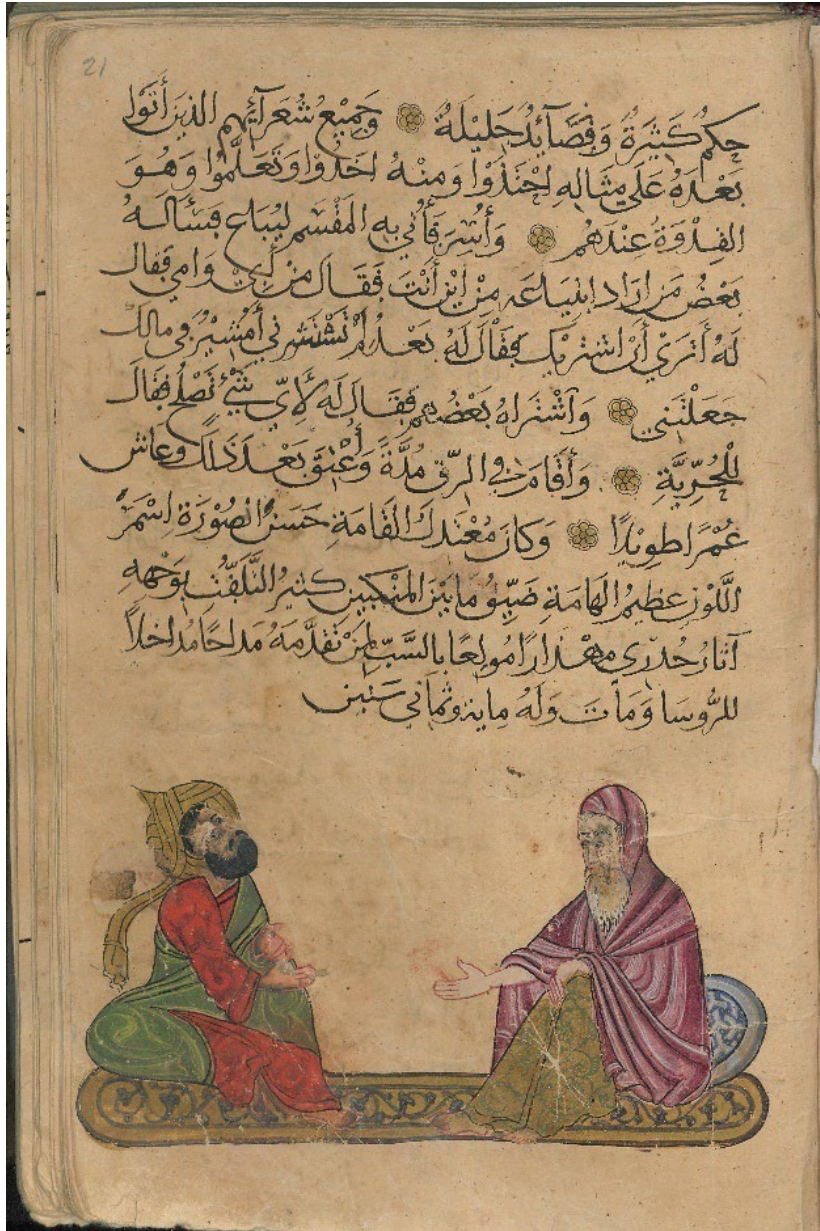 21
حِكَمٌ كَثِيرَةٌ وَقَصَآئِدُ جَلِيلَةٌ وَجَمِيْعُ شُعَرَآئِهِم الذينَ أَتَوْا
بَعْدَهُ عَلَى مِثَالِهِ احْتَذَوْا وَمِنْهُ اخَذُوا وَتَعَلَّمُوا وَهُوَ
القِدْوَةُ عِنْدَهُم وَأُسِرَ فَأُتِي بِهِ المَقْسَم لِيُبَاع فَسَأَلَهُ
بَعْضُ مَن ارَاد ابْتِيَاعَه مِنْ اَيْنَ أَنْتَ فَقَالَ مِن أَبِي وَامي فقال
لَهُ أَتَرَي أَنْ اشتريَكَ فَقَالَ لَهُ بَعْدُ لَمْ تَشْتَرِني أَمُشِيرٌ في مالك
جَعَلْتَنِي وَاشْتَرَاهُ بَعْضُهم فَقَالَ لَه لأَيِّ شَيْءٍ تَصْلُح فَقَالَ
لِلْحُرِّيَّةِ وَأَقَامَ في الرِّقِ مُدَّةً وَأُعْتِقَ بَعْدَ ذَلكَ وعَاش
عُمْرًا طويْلًا وَكانَ مُعْتَدِلَ القَامَةِ حَسَنَ الصُوْرَةِ اسْمَرَ
اللَّوْنِ عظيمَ الهَامةِ ضَيِّقَ ما بَيْنَ المنْكبين كثيرَ التَّلَفُّتِ بوَجْهِهِ
آثارُ جُدَري مِهْذَارًا مُولعًا بالسَّبِّ لِمَنْ تَقَدَّمَهُ مَداحًا مُداخلًا
للرُّوسَا وَمَاتَ وَلَهُ ماية وثَماني سَنين